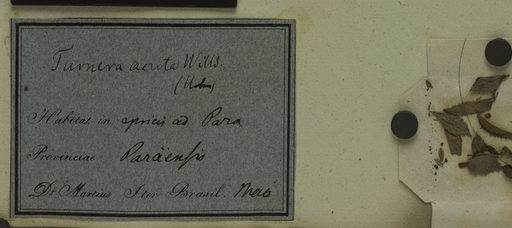 Turnera acuta Willd.
Habitat in apricis ad Para
Provinciae Paräensis
Dr Martius Iter Brasil.